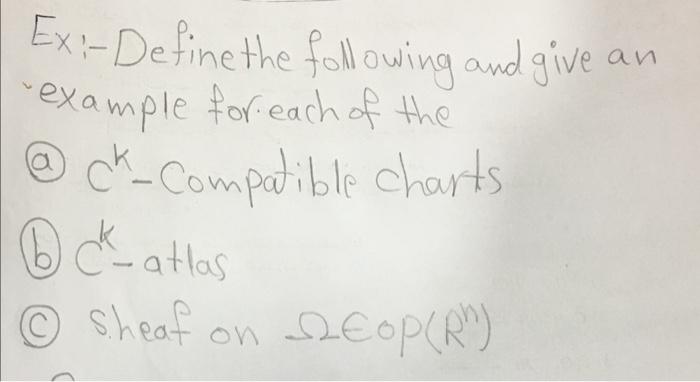 Ex:- Define the following and give an
example for each of the
(a) C^k - Compatible charts
(b) C^k - atlas
(c) sheaf on Ω ∈ op(R^n)